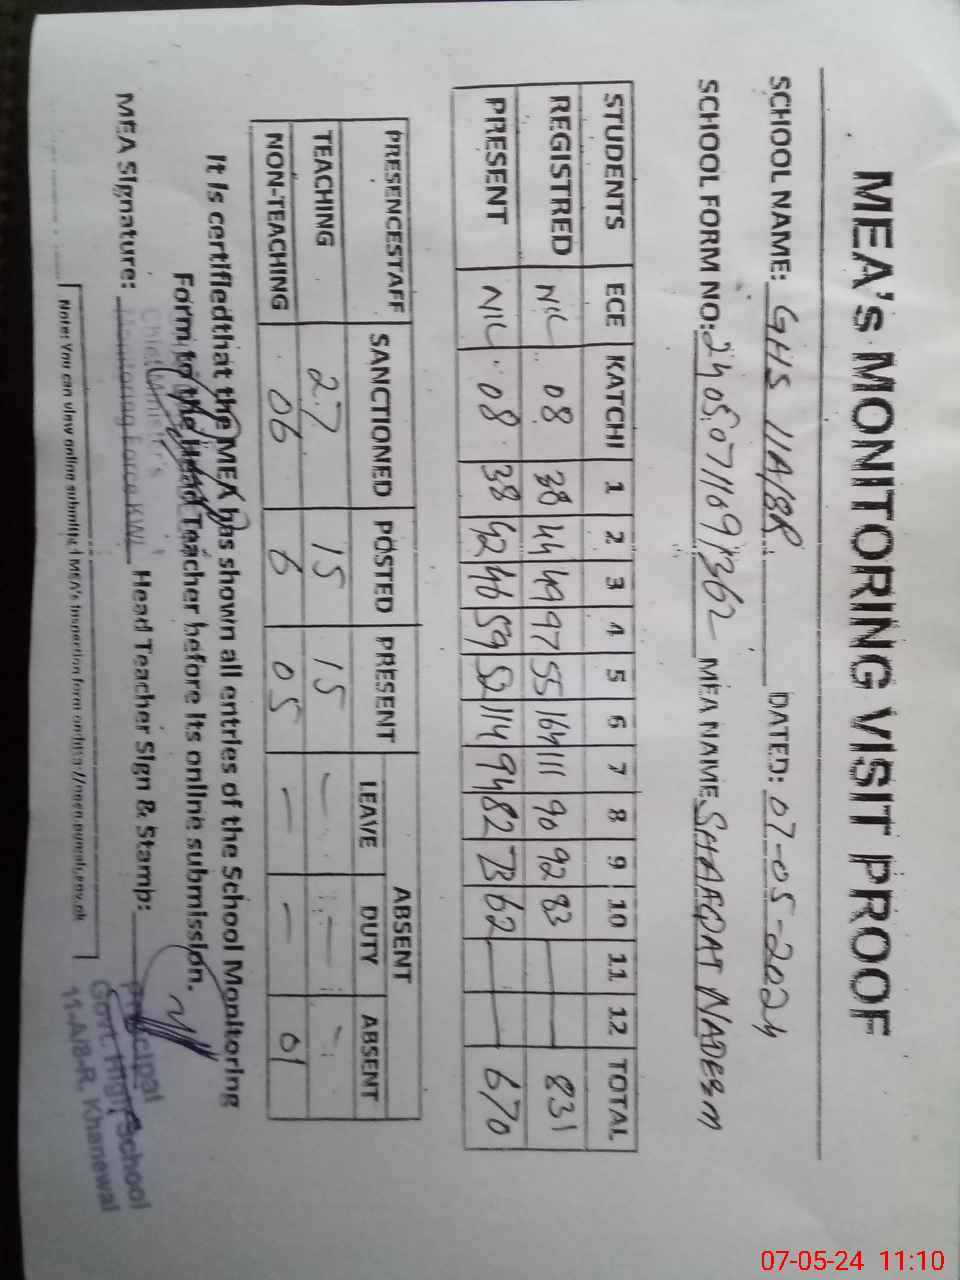 MEA's MONITORING VISIT PROOF
SCHOOL NAME: GHS 11A/8R DATED: 07-05-2024
SCHOOL FORM NO: MEA NAME SHAFQAT NADEEM
STUDENTS ECE KATCHI 1 2 3 4 5 6 7 8 9 10 11 12 TOTAL
REGISTRED NIL 08 38 44 49 97 55 164 111 90 92 83 — — 831
PRESENT NIL 08 38 42 46 59 52 114 94 82 73 62 — — 670
PRESENCESTAFF SANCTIONED POSTED PRESENT ABSENT
LEAVE DUTY ABSENT
TEACHING 27 15 15 — — -
NON-TEACHING 06 6 05 — — 01
It is certifiedthat the MEA has shown all entries of the School Monitoring
Form to the Head Teacher before its online submission.
Chief Minister's
Monitoring Force KWL
MEA Signature: Head Teacher Sign & Stamp:
Principal
Govt. High School
11-A/8-R, Khanewal
Note: You can view online submitted MEA's inspection form on
07-05-24 11:10